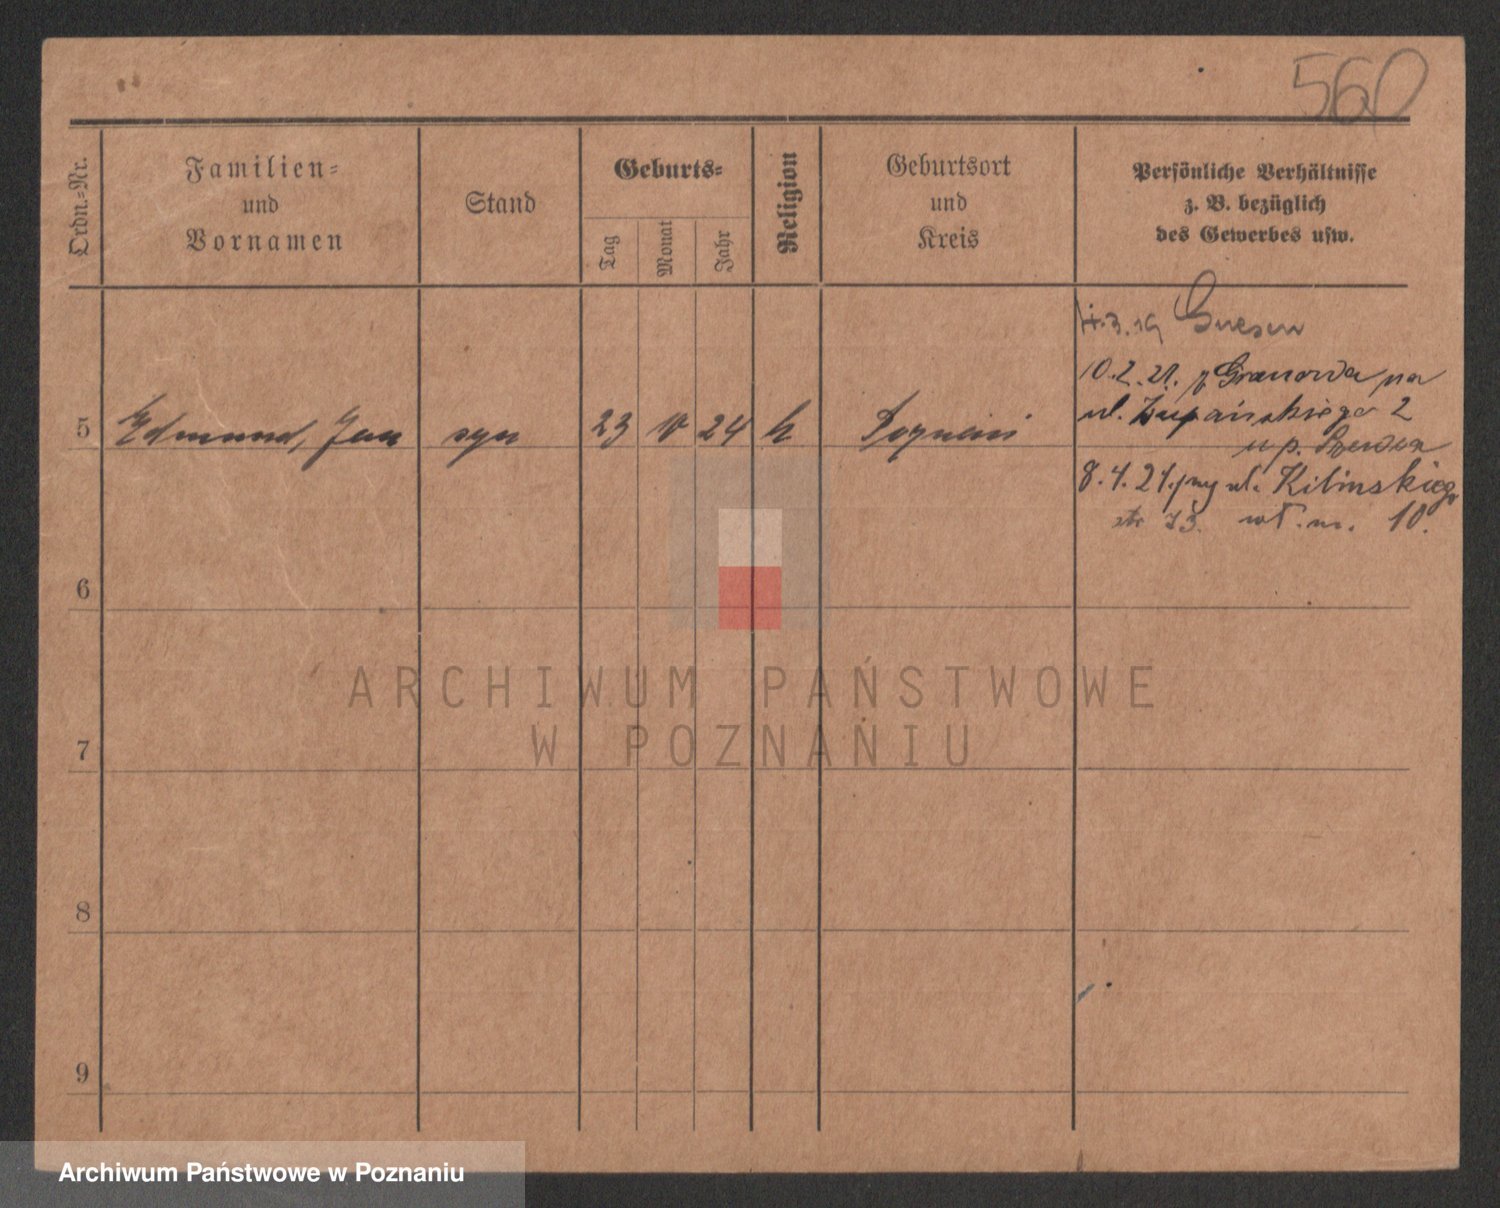 560
Ordn.=Nr.
Familien=
und
Vornamen
Stand
Geburts=
Tag
Monat
Jahr
Religion
Geburtsort
und
Kreis
Persönliche Verhältnisse
z. B. bezüglich
des Gewerbes usw.
Gnesen
10.2.21. z Granowa na
ul. Żupańskiego 2
u p.
5 Edmund, Jan syn 23 V 24 k Poznań
8.4.21. ul. Kilinskiego
str 13. m. 10.
6
7
8
9
ARCHIWUM PAŃSTWOWE
W POZNANIU
Archiwum Państwowe w Poznaniu